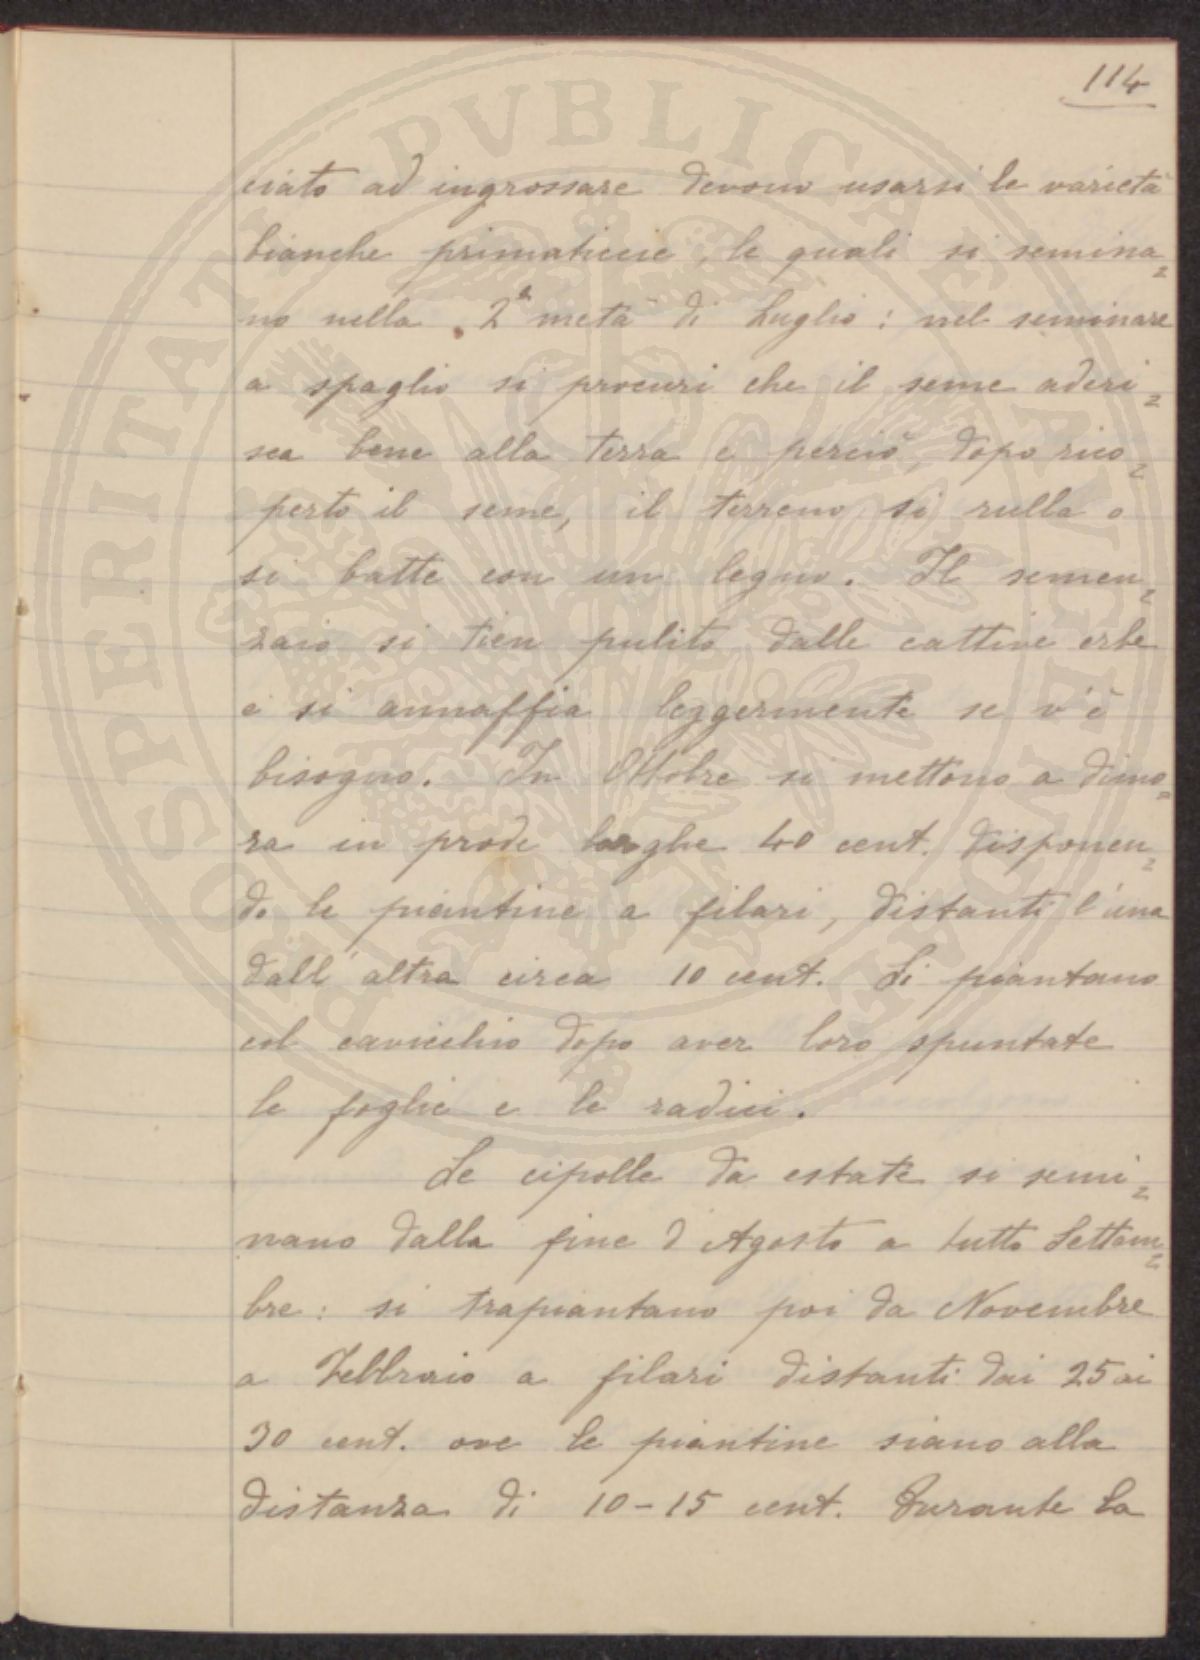 114
ciato ad ingrossare devono usarsi le varietà
bianche primaticcie, le quali si semina=
no nella 2ª metà di Luglio: nel seminare
a spaglio si procuri che il seme aderi=
sca bene alla terra e perciò, dopo rico=
perto il seme, il terreno si rulla o
si batte con un legno. Il semen=
zaio si tien pulito dalle cattive erbe
e si annaffia leggermente se v'è
bisogno. In Ottobre si mettono a dimo=
ra in prode larghe 40 cent. disponen=
do le piantine a filari, distanti l'una
dall'altra circa 10 cent. Si piantano
col cavicchio dopo aver loro spuntate
le foglie e le radici.
Le cipolle da estate si semi=
nano dalla fine d'Agosto a tutto Settem=
bre: si trapiantano poi da Novembre
a Febbraio a filari distanti dai 25 ai
30 cent. ove le piantine siano alla
distanza di 10-15 cent. Durante la
PROSPERITATI PVBLICAE AVGENDAE